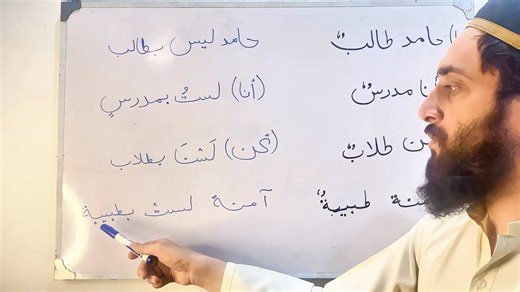 حامد طالبٌ حامد ليس بطالب
مدرسٌ (أنا) لستُ بمدرسٍ
طلابٌ (نحن) لَسْنَا بطلاب
طبيبةٌ آمنة لست بطبيبة